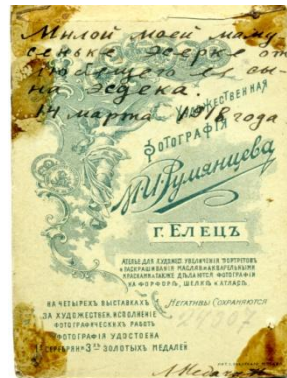 Милой моей маму-
сеньке эсерке от
любящего ея сы-
на эсдека.
14 марта 1918 года
Художественная
Фотографія
М.И. Румянцева
Г. ЕЛЕЦЪ
АТЕЛЬЕ ДЛЯ ХУДОЖЕСТ. УВЕЛИЧЕНІЯ ПОРТРЕТОВЪ
И РАСКРАШИВАНІЯ МАСЛЯН. И АКВАРЕЛЬНЫМИ
КРАСКАМИ А ТАКЖЕ ДѢЛАЮТСЯ ФОТОГРАФІИ
НА ФАРФОРѢ, ШЕЛКѢ И АТЛАСѢ.
НА ЧЕТЫРЕХЪ ВЫСТАВКАХЪ
ЗА ХУДОЖЕСТВЕН. ИСПОЛНЕНІЕ
ФОТОГРАФИЧЕСКИХЪ РАБОТЪ
ФОТОГРАФІЯ УДОСТОЕНА
СЕРЕБРЯН. И 3хъ ЗОЛОТЫХЪ МЕДАЛЕЙ.
НЕГАТИВЫ СОХРАНЯЮТСЯ